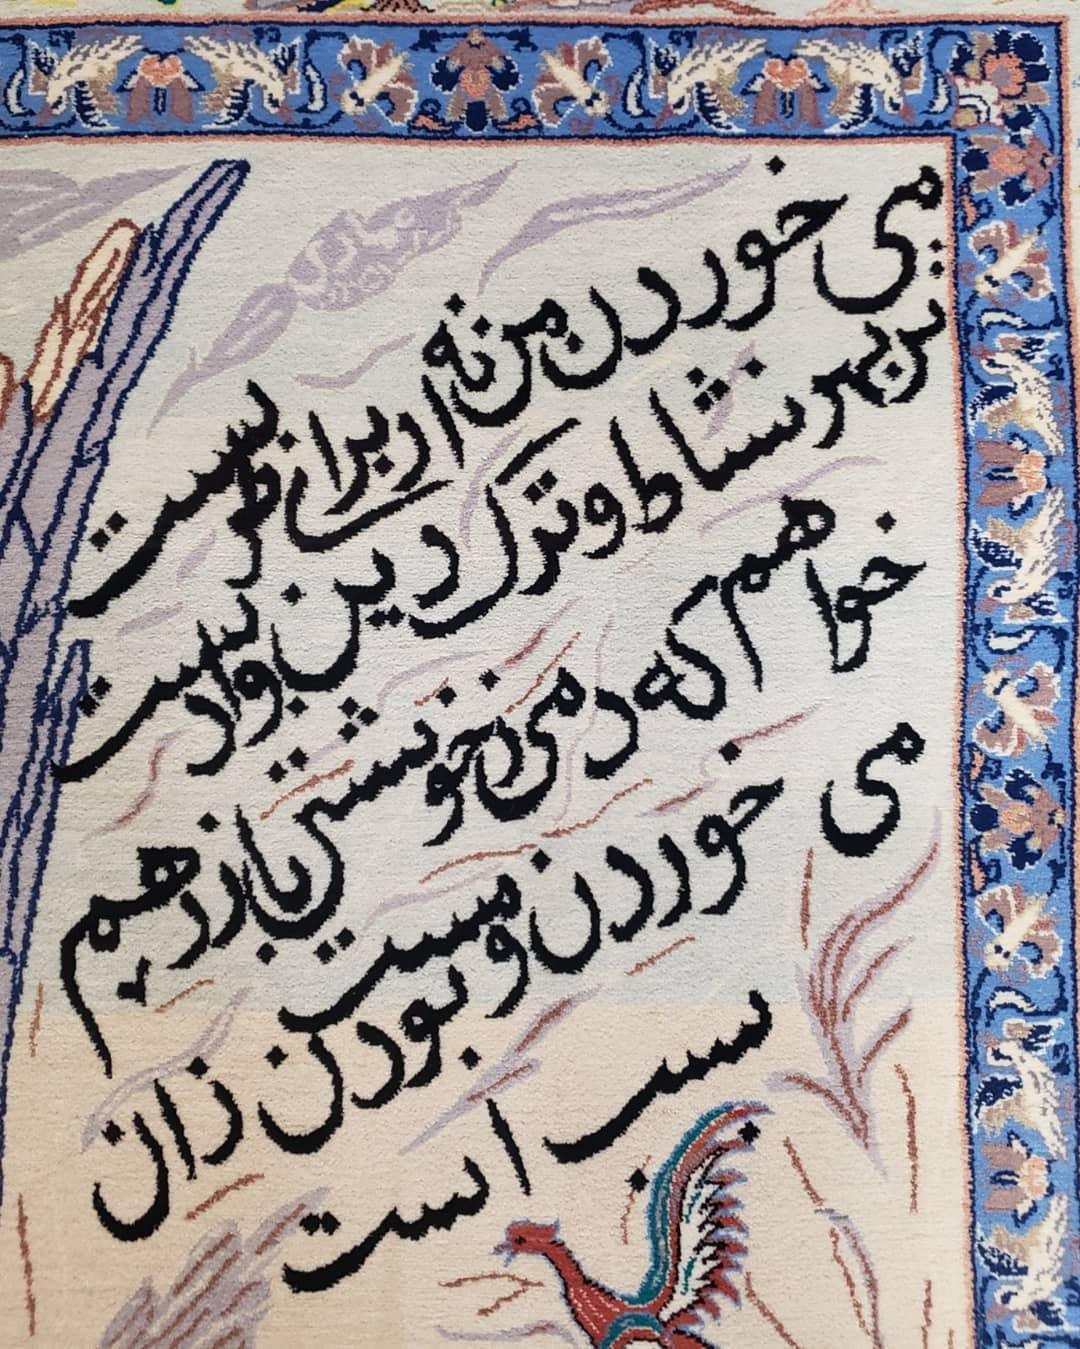 می خوردن من نه از برای طربست
نی بهر نشاط و ترک دین و ادبست
خواهم که دمی ز خویشتن باز رهم
می خوردن و مست بودن زان
سبب است